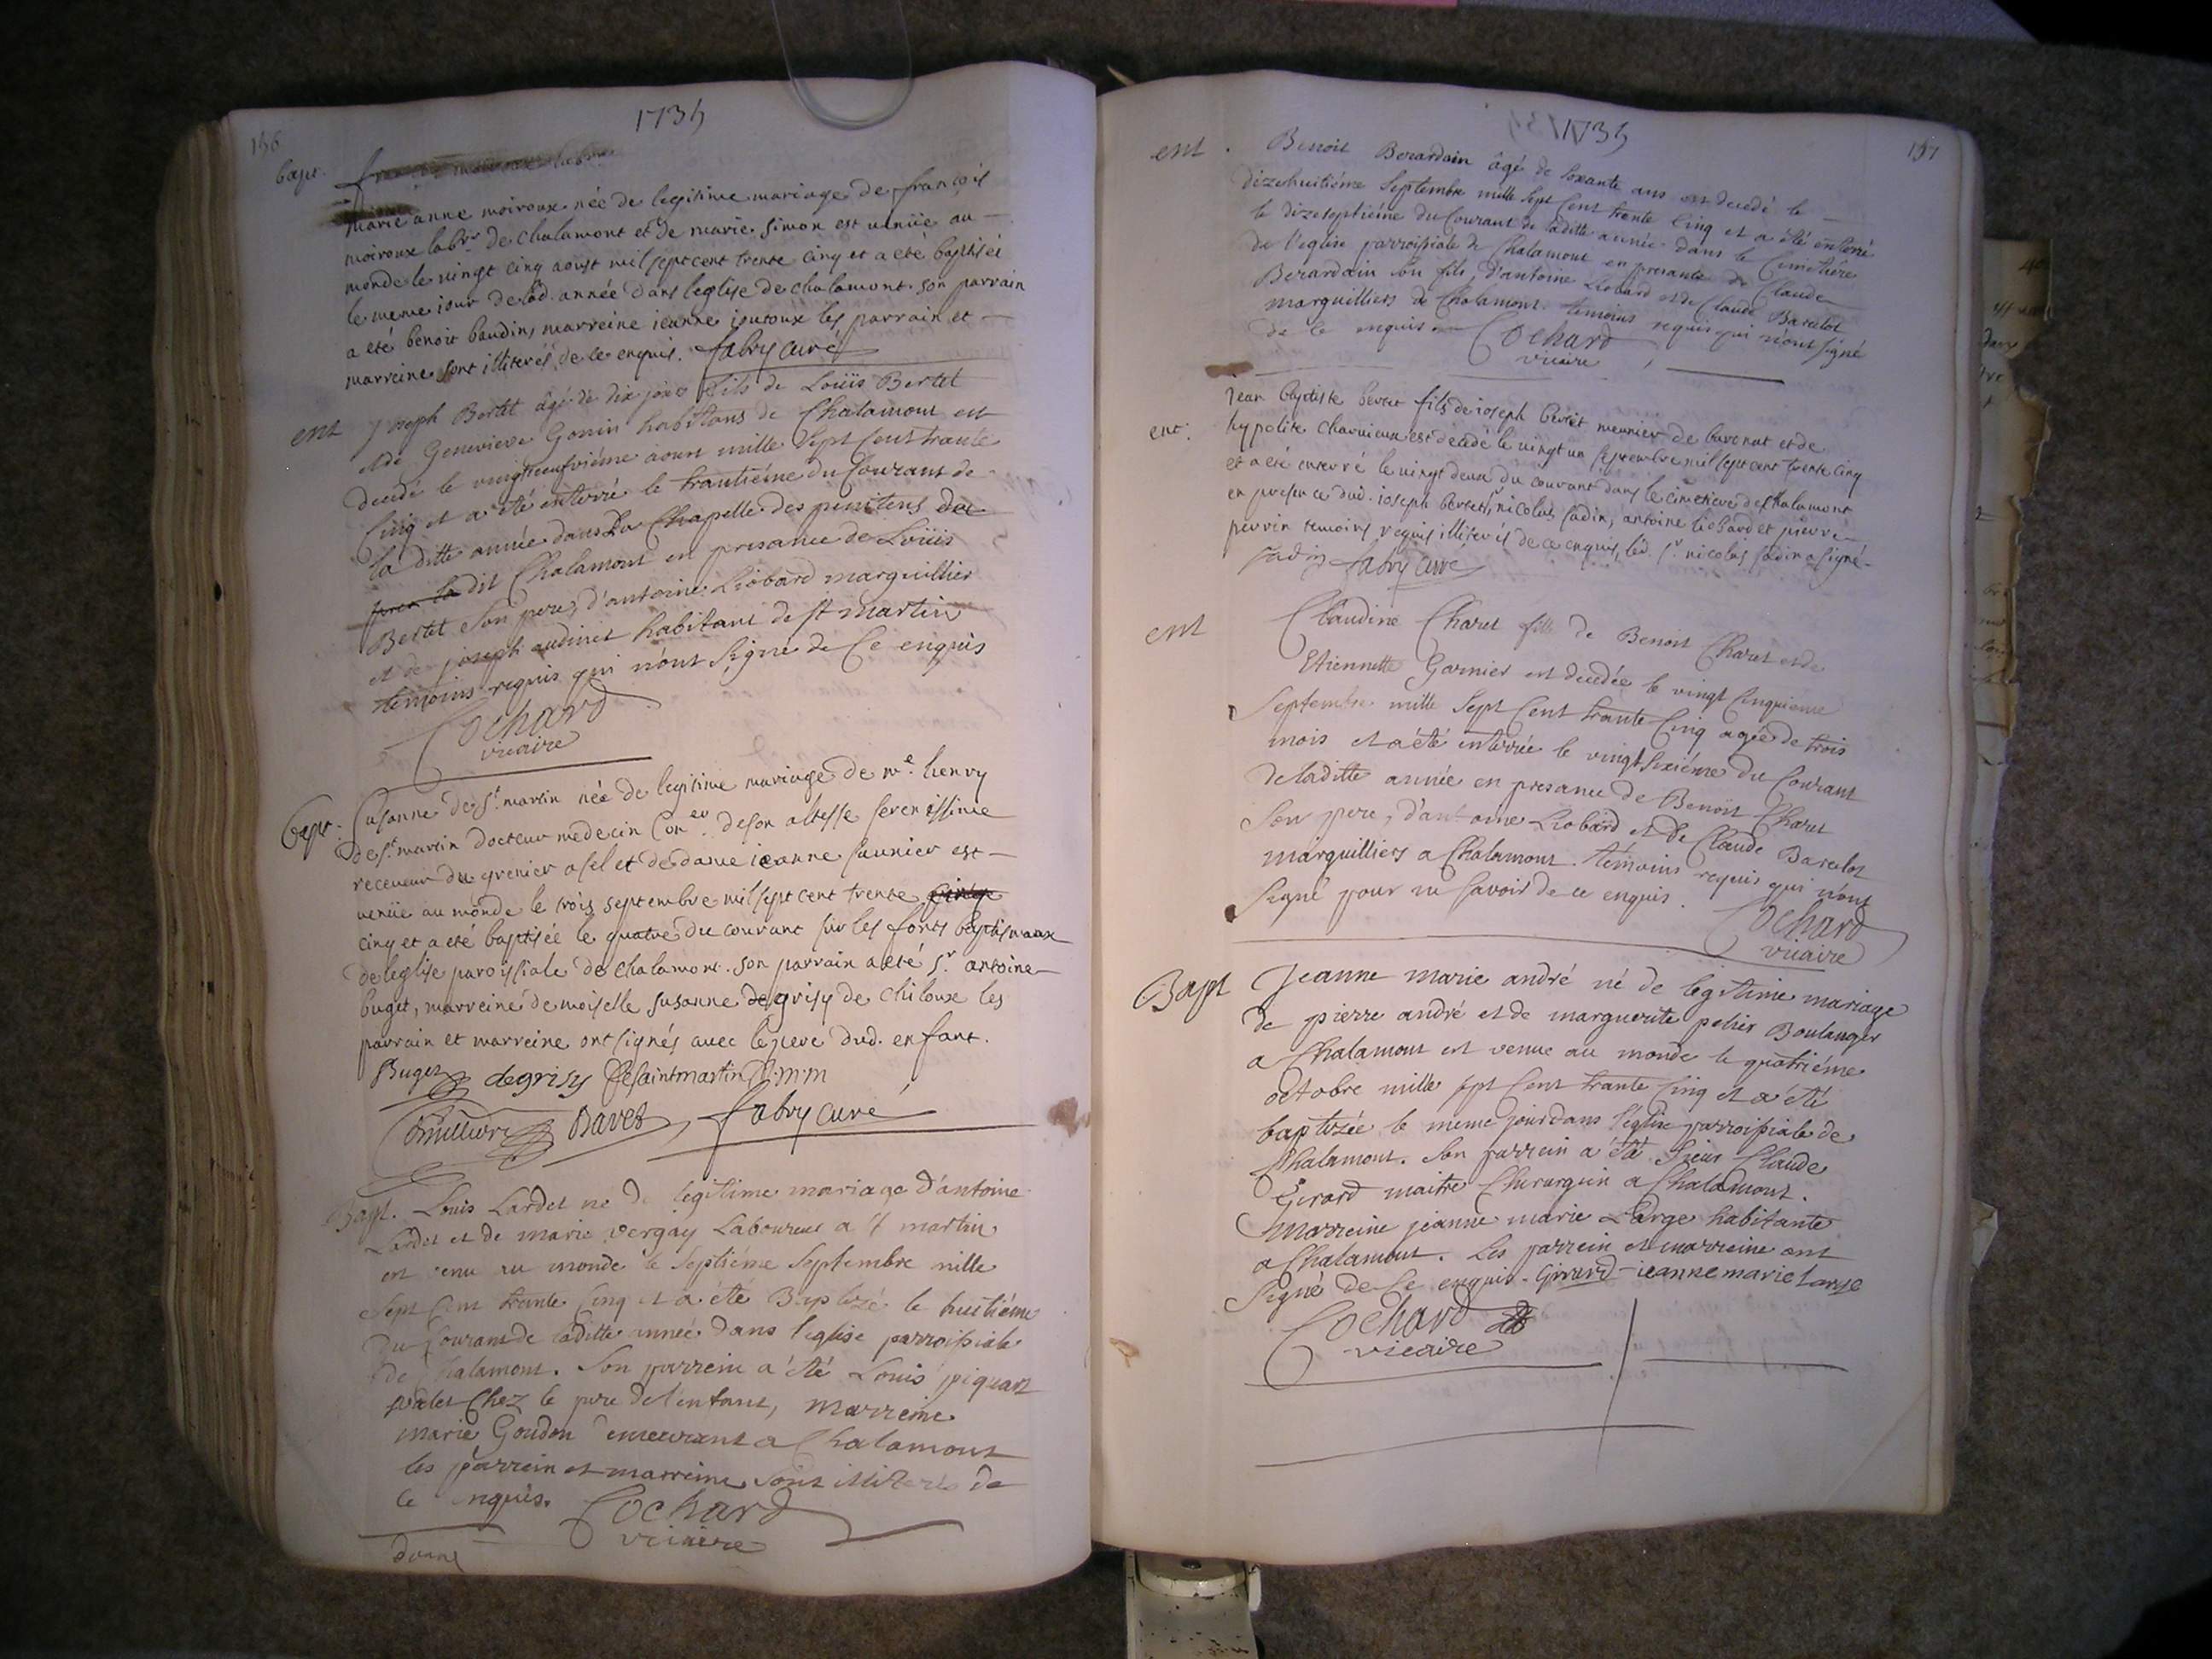 156
1735
bapt.
marie anne moiroux née de legitime mariage de françois
moiroux labr. de chalamont et de marie simon est venüe au
monde le vingt cinq aoust mil sept cent trente cinq et a eté baptisée
le meme iour de lad. année dans leglise de chalamont. son parrain
a eté benoit baudin, marreine ieanne iouroux les parrain et
marreine sont illiterés de ce enquis. fabry curé
ent Joseph Bertet âgé de dix jours fils de Loüis Bertet
et de Genevieve Gonin habitans de Chalamont est
decedé le vingtneufvième aoust mille sept cent trante
Cinq et a été enterré le trantiéme du Courant de
la ditte année dans La Chapelle des penitens
dit Chalamont en presance de Loüis
Bertet son pere, d'antoine Liobard marguillier
et de joseph audinet habitant de st martin
temoins requis qui n'ont signé de Ce enquis
Cochard
vicaire
bapt. Susanne de st. martin née de legitime mariage de me. henry
de st. martin docteur medecin Coner. de son altesse serenissime
receveur du grenier a sel et de dame ieanne saunier est
venüe au monde le trois septembre mil sept cent trente
cinq et a eté baptisée le quatre du courant sur les fonts baptismaux
de leglise paroissiale de chalamont. son parrain a eté sr. antoine
buget, marreine demoiselle susanne degrisy de chiloux les
parrain et marreine ont signés avec le pere dud. enfant.
Buget degrisy Desaintmartin D.m.m
Davet fabry curé
Bapt. Louis Lardet né de legitime mariage d'antoine
Lardet et de marie vergay Laboureur a st martin
est venu au monde le septiéme septembre mille
sept Cent trante Cinq et a été Baptizé le huitiéme
du Courant de laditte année dans l'eglise parroissiale
de Chalamont. Son parrein a été Louis piquart
valet Chez le pere de l'enfant, marreine
marie Goudon demeurant a Chalamont
les parrein et marreine sont illiterés de
Ce enquis. Cochard
vicaire
157
1735
ent. Benoit Berardain âgé de soxante ans est decedé le
dizehuitiéme septembre mille sept Cent trente Cinq et a été enterré
le dizeseptiéme du Courant de laditte année dans le Cimetiére
de l'eglise parroissiale de Chalamont en presance de Claude
Berardain son fils, d'antoine Liobard et de Claude Baralot
marguilliers de Chalamont. temoins requis qui n'ont signé
de Ce enquis. Cochard
vicaire
Jean baptiste bertet fils de ioseph bertet meunier de et de
ent. hypolite charvieux est decedé le vingt un septembre mil sept cent trente cinq
et a eté enterré le vingt deux du courant dans le cimetiere de chalamont
en presence dud. ioseph bertet, sr nicolas sadin, antoine liobard et pierre
perrin temoins requis illiterés de ce enquis, led. sr. nicolas sadin a signé
sadin fabry curé
ent Claudine Charet fille de Benoit Charet et de
Etiennette Garnier est decedée le vingt Cinquieme
septembre mille sept Cent trante Cinq agée de trois
mois et a été enterrée le vingt sixiéme du Courant
de laditte année en presance de Benoit Charet
son pere, d'antoine Liobard et de Claude Baralot
marguilliers a Chalamont. témoins requis qui n'ont
signé pour ne savoir de ce enquis. Cochard
vicaire
Bapt Jeanne marie andré né de legitime mariage
de pierre andré et de marguerite Boulanger
a Chalamont est venue au monde le quatriéme
octobre mille sept Cent trante Cinq et a été
baptizée le meme jour dans l'eglise parroissiale de
Chalamont. Son parrein a été sieur Claude
Girard maitre Chirurgien a Chalamont.
marreine jeanne marie Large habitante
a Chalamont. Les parrein et marreine ont
signé de Ce enquis. Girard ieanne marie Large
Cochard
vicaire